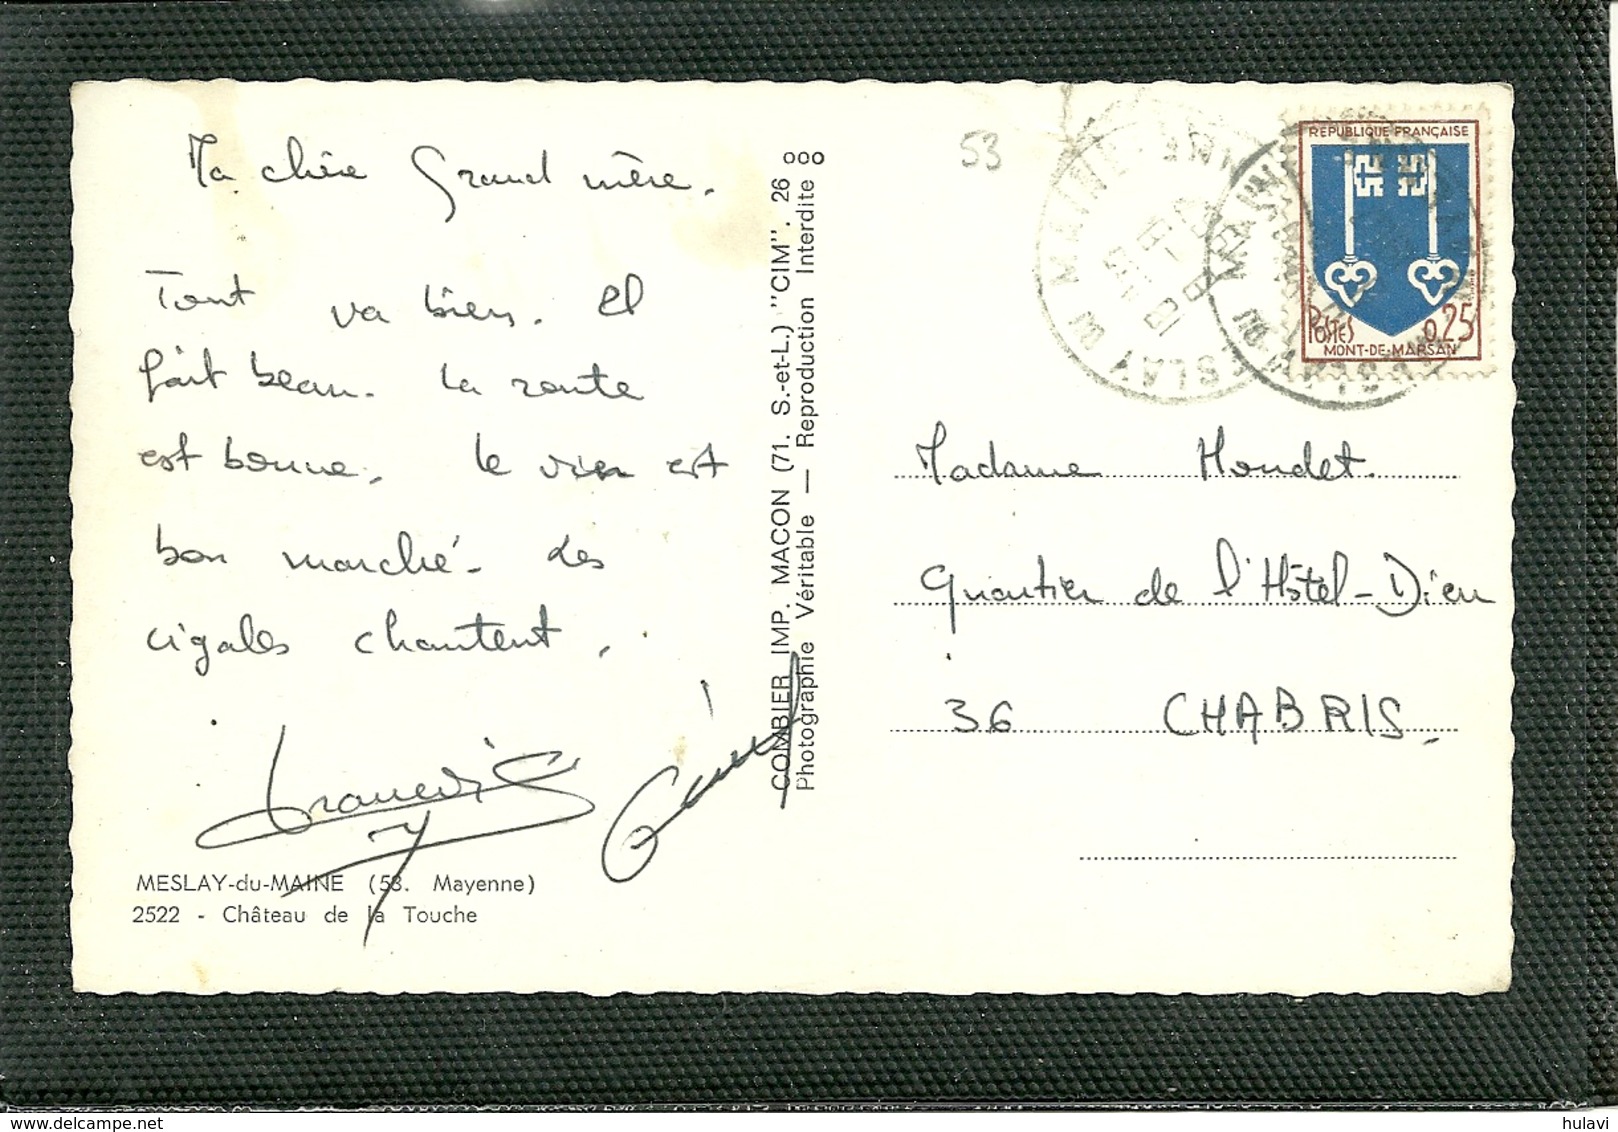 Ma chère Grand mère.
Tout va bien. Il
fait beau. La route
est bonne. Le vin est
bon marché. Les
cigales chantent.
MESLAY-du-MAINE (53. Mayenne)
2522 - Château de la Touche
COMBIER IMP. MACON (71. S.-et-L.) "CIM". 26 ooo
Photographie Véritable — Reproduction Interdite
53
REPUBLIQUE FRANÇAISE
POSTES 0,25
MONT-DE-MARSAN
Madame Houdet.
Quartier de l'Hôtel-Dieu
36 CHABRIS.
hulavi